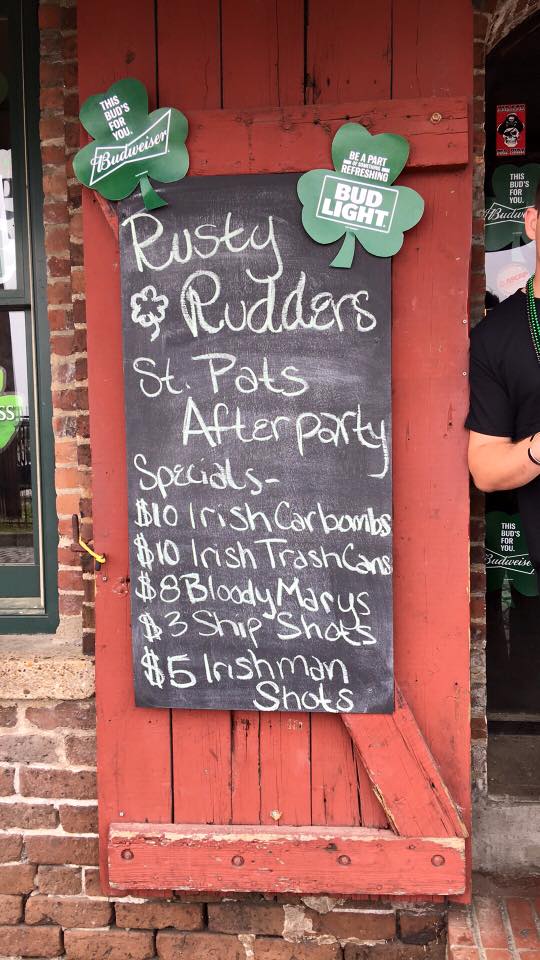 THIS
BUD'S
FOR
YOU.
Budweiser
BE A PART
OF SOMETHING
REFRESHING
BUD
LIGHT
Rusty
Rudders
St. Pats
Afterparty
Specials-
$10 Irish Carbombs
$10 Irish TrashCans
$8 Bloody Marys
$3 Ship Shots
$5 Irishman
Shots
THIS
BUD'S
FOR
YOU.
Budw
THIS
BUD'S
FOR
YOU.
Budweise
SS